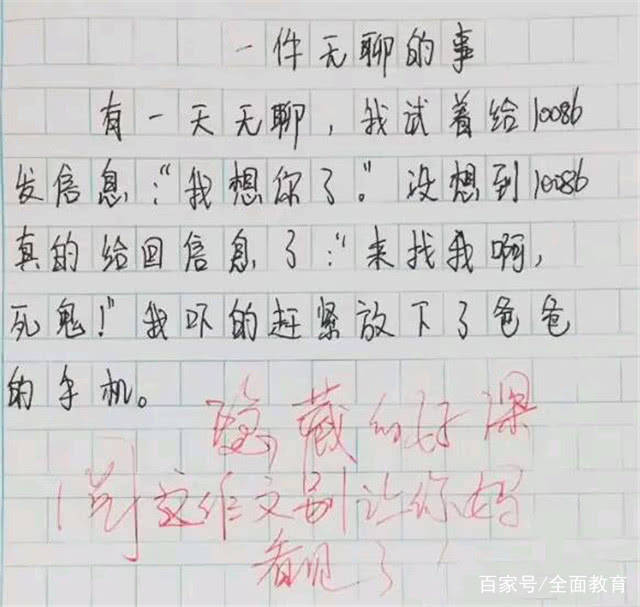 一件无聊的事
有一天无聊，我试着给10086
发信息：“我想你了。”没想到10086
真的给回信息了：“来找我啊，
死鬼！”我吓的赶紧放下了爸爸
的手机。
隐藏的好深
这作文别让你妈
看见了！
百家号/全面教育